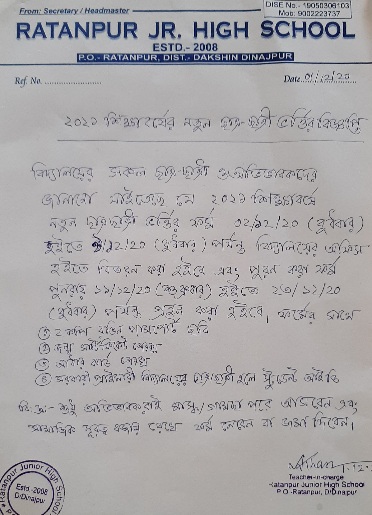 From: Secretary / Headmaster
DISE No.- 19050306103
Mob: 9002223737
RATANPUR JR. HIGH SCHOOL
ESTD.- 2008
P.O.- RATANPUR, DIST.- DAKSHIN DINAJPUR
Ref. No.
Date 01/12/20
২০২১ শিক্ষাবর্ষের নতুন ছাত্র-ছাত্রী ভর্তির বিজ্ঞপ্তি
বিদ্যালয়ের সকল ছাত্র-ছাত্রী ও অভিভাবকদের
জানানো যাইতেছে যে ২০২১ শিক্ষাবর্ষে
নতুন ছাত্রছাত্রী ভর্তির ফর্ম ০২/১২/২০ (বুধবার)
হইতে ৯/১২/২০ (বুধবার) পর্যন্ত বিদ্যালয়ের অফিস
হইতে বিতরণ করা হইবে এবং পূরণ করা ফর্ম
পুনরায় ১১/১২/২০ (শুক্রবার) হইতে ২৩/১২/২০
(বুধবার) পর্যন্ত গ্রহণ করা হইবে। ফর্মের সাথে
① ২ কপি রঙিন পাসপোর্ট ছবি
② জন্ম সার্টিফিকেট জেরক্স
③ আধার কার্ড জেরক্স
④ সরকারী প্রাইমারী বিদ্যালয়ের ছাত্রছাত্রী হলে স্টুডেন্ট আইডি
বিঃ দ্রঃ- শুধু অভিভাবকরাই মাস্ক/গামছা পরে আসবেন এবং
সামাজিক দূরত্ব বজায় রেখে ফর্ম নেবেন বা জমা দিবেন।
Teacher-in-charge
Ratanpur Junior High School
P.O.-Ratanpur, D/Dinajpur
Ratanpur Junior High School
Estd.-2008
D/Dinajpur